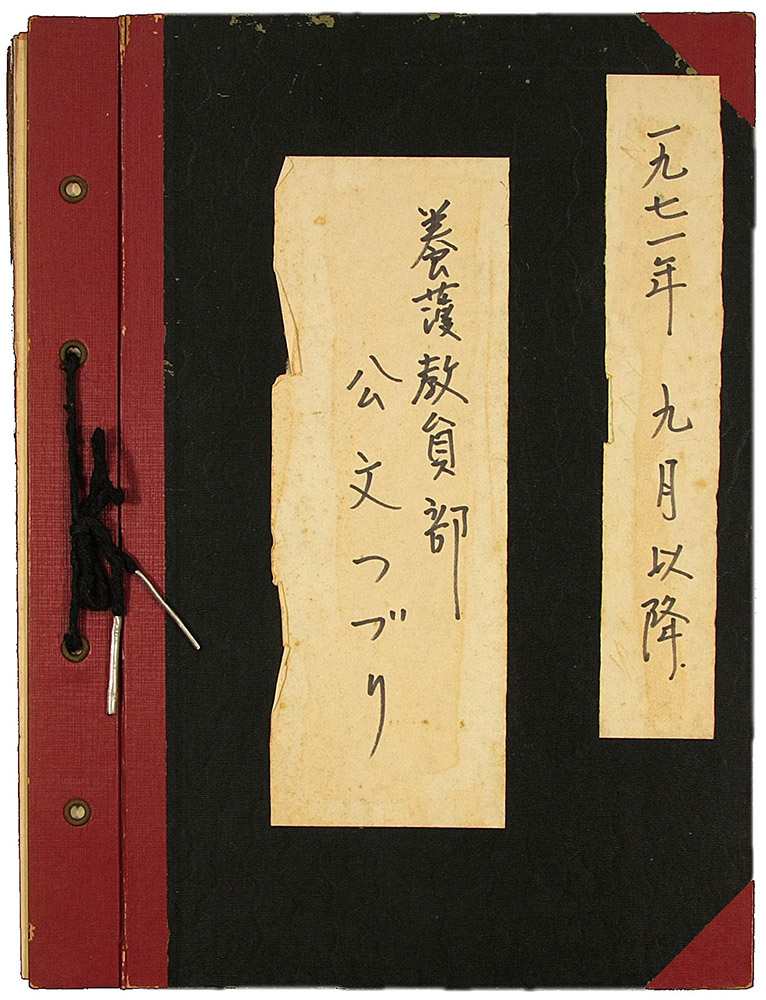 一九七一年 九月以降
養護教員部
公文つづり